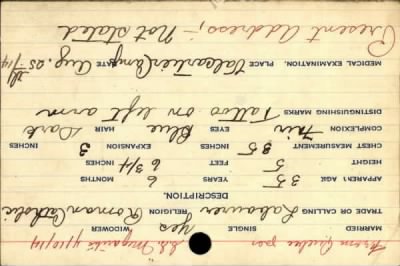 From Quebec per
S.S. 4/10/14
MARRIED SINGLE Yes WIDOWER
TRADE OR CALLING Labourer RELIGION Roman Catholic
DESCRIPTION.
APPARENT AGE 35 YEARS 6 MONTHS
HEIGHT 5 FEET 6 3/4 INCHES
CHEST MEASUREMENT 35 INCHES EXPANSION 3 INCHES
COMPLEXION Fair EYES Blue HAIR Dark
DISTINGUISHING MARKS Tattoo on left arm
MEDICAL EXAMINATION. PLACE Valcartier Camp DATE Aug. 25/14
Present Address;- Not Stated